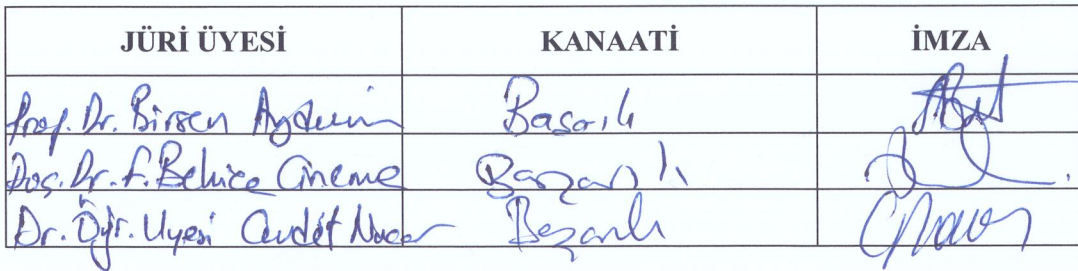 JÜRİ ÜYESİ KANAATİ İMZA
Prof. Dr. Birsen Aydemir Başarılı
Doç. Dr. F. Behice Cinemre Başarılı
Dr. Öğr. Üyesi Cevdet Başarılı